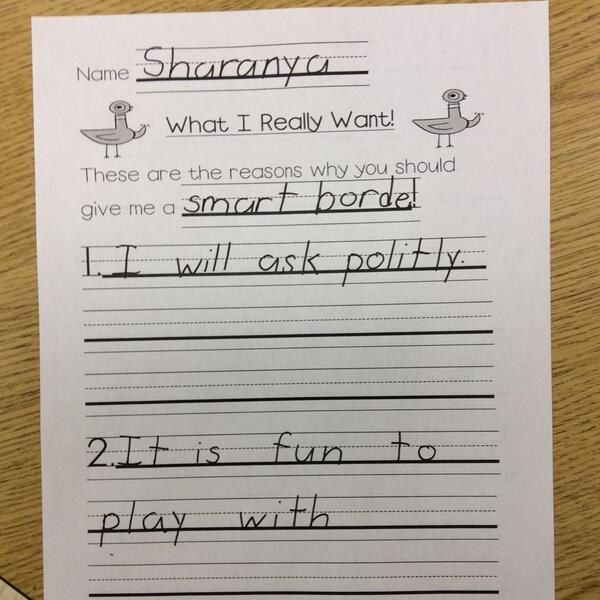 Name Sharanya
What I Really Want!
These are the reasons why you should
give me a smart borde!
1. I will ask politly.
2. It is fun to
play with